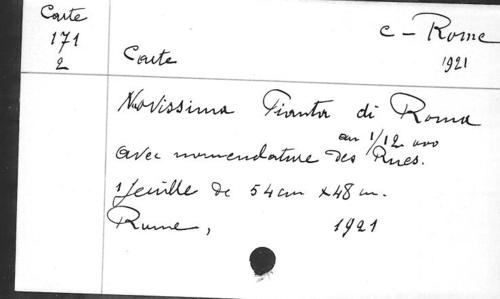 Carte
171
2
c - Rome
1921
Carte
Novissima Pianta di Roma
au 1/12 000
avec nomenclature des Rues.
1 feuille de 54cm x 48 m.
Rome, 1921